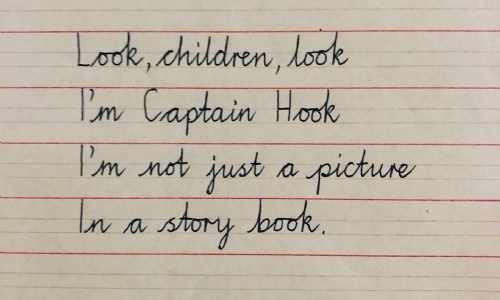 Look, children, look
I'm Captain Hook
I'm not just a picture
In a story book.